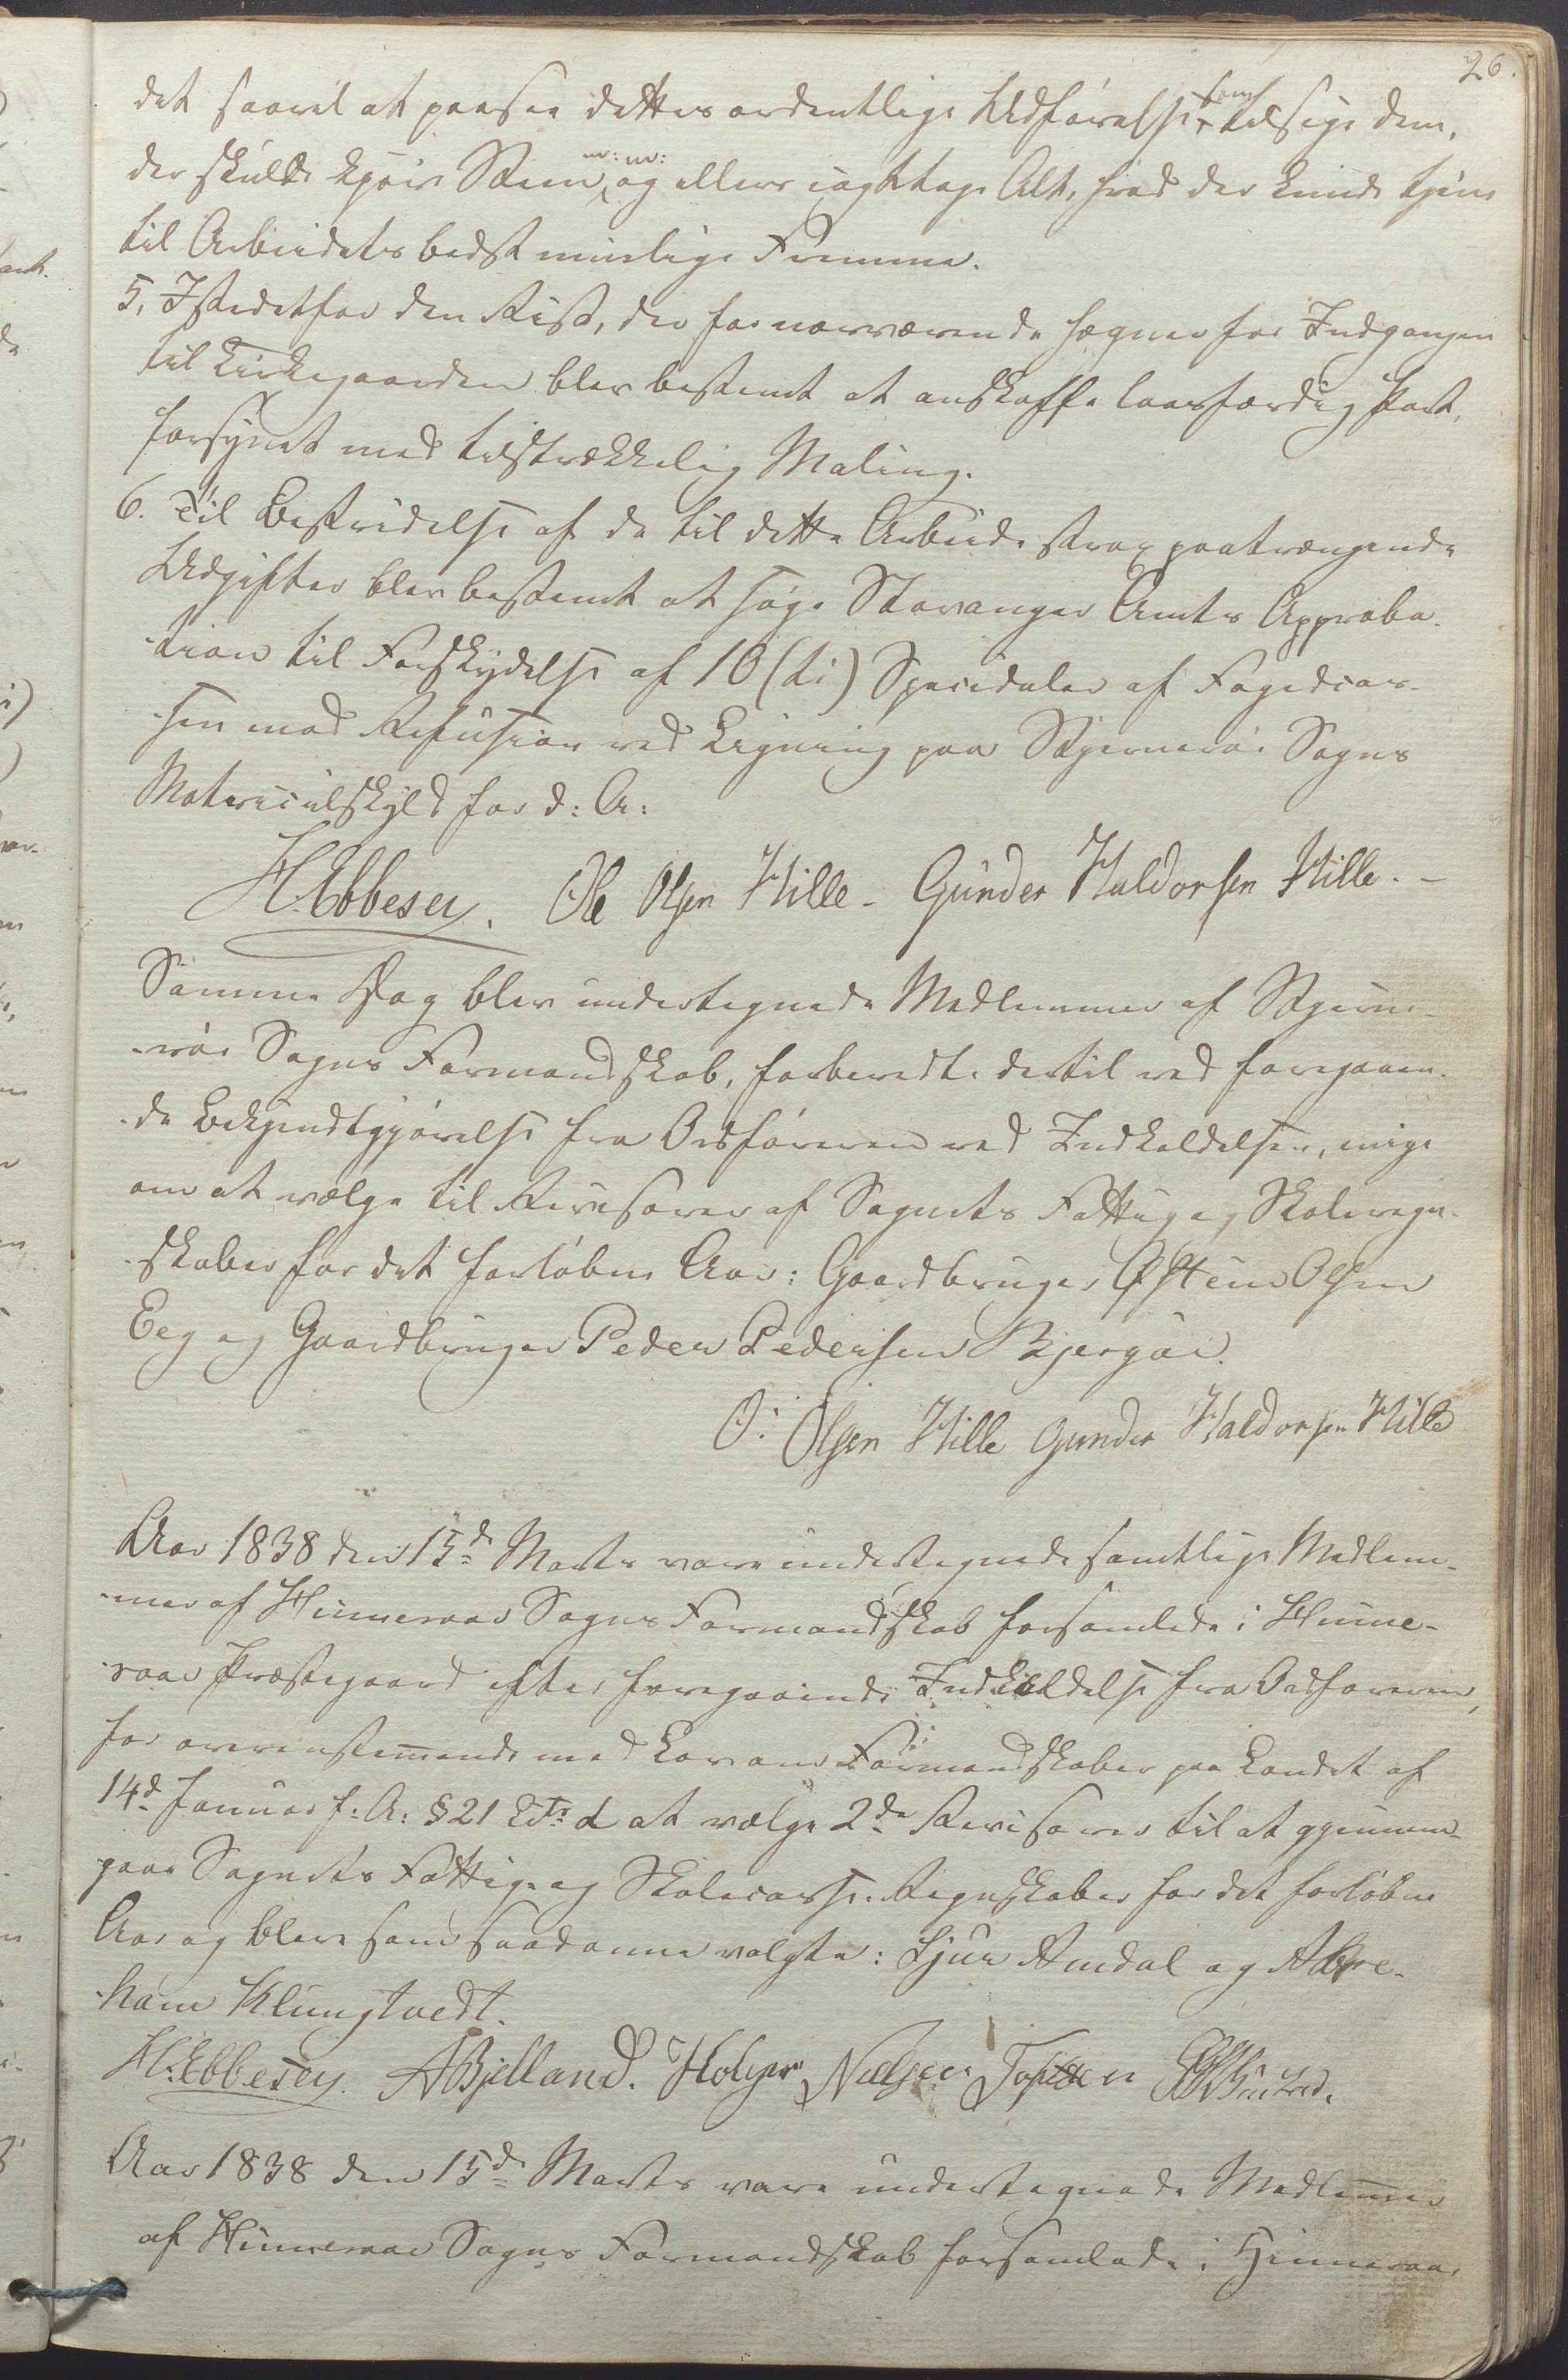 26.
det saavel at paasee dettes ordentlige Udførelse, som tilsige dem,
der skulde kjøre Steen m: m: og ellers iagttage Alt, hvad der kunde tjene
til Arbeidets bedst muelige Fremme.
5, Istedetfor den Rist, der for nærværende hegner for Indgangen
til Kirkegaarden blev bestemt at anskaffe laasfærdig Port,
forsynet med tilstrækkelig Maling.
6. Til Bestridelse af de til dette Arbeide strax paatrængende
Udgifter blev bestemt at søge Stavanger Amts Approba-
-tion til Forskydelse af 10 (ti) Speciedaler af Fogedcas-
-sen mod Refusion ved Ligning paa Stjernerøe Sogns
Matriculskyld for d: A:
H. Ebbesen. Ole Olsen Hille - Gunder Haldorsen Hille. -
Samme Dag blev undertegnede Medlemmer af Stjerne-
-røe Sogns Formandskab, forberedte dertil ved foregaaen-
-de Bekjendtgjørelse fra Ordføreren ved Indkaldelsen, enige
om at vælge til Revisorer af Sognets Fattig og Skoleregn-
-skaber for det forløbne Aar: Gaardbruger Østen Olsen
Eeg og Gaardbruger Peder Pedersen Bjergøe.
O: Olsen Hille Gunder Haldorsen Hille
Aar 1838 den 15de Marts vare undertegnede samtlige Medlem-
-mer af Hinneraae Sogns Formandskab forsamlede i Hinne-
-raae Præstegaard efter foregaaende Indkaldelse fra Ordføreren,
for overenstemmende med Lov om Formandskaber paa Landet af
14de Januar f: A: § 21 Litr. d at vælge 2de Revisorer til at gjennem-
gaae Sognets Fattig- og Skolecasse-Regnskaber for det forløbne
Aar og bleve som saadanne valgte: Sjur Amdal og Abra-
-ham Klungtvedt.
H. Ebbesen. A Bjelland. Holger Nielsen Toften
Aar 1838 den 15de Marts vare undertegnede Medlemmer
af Hinneraae Sogns Formandskab forsamlede i Hinneraae